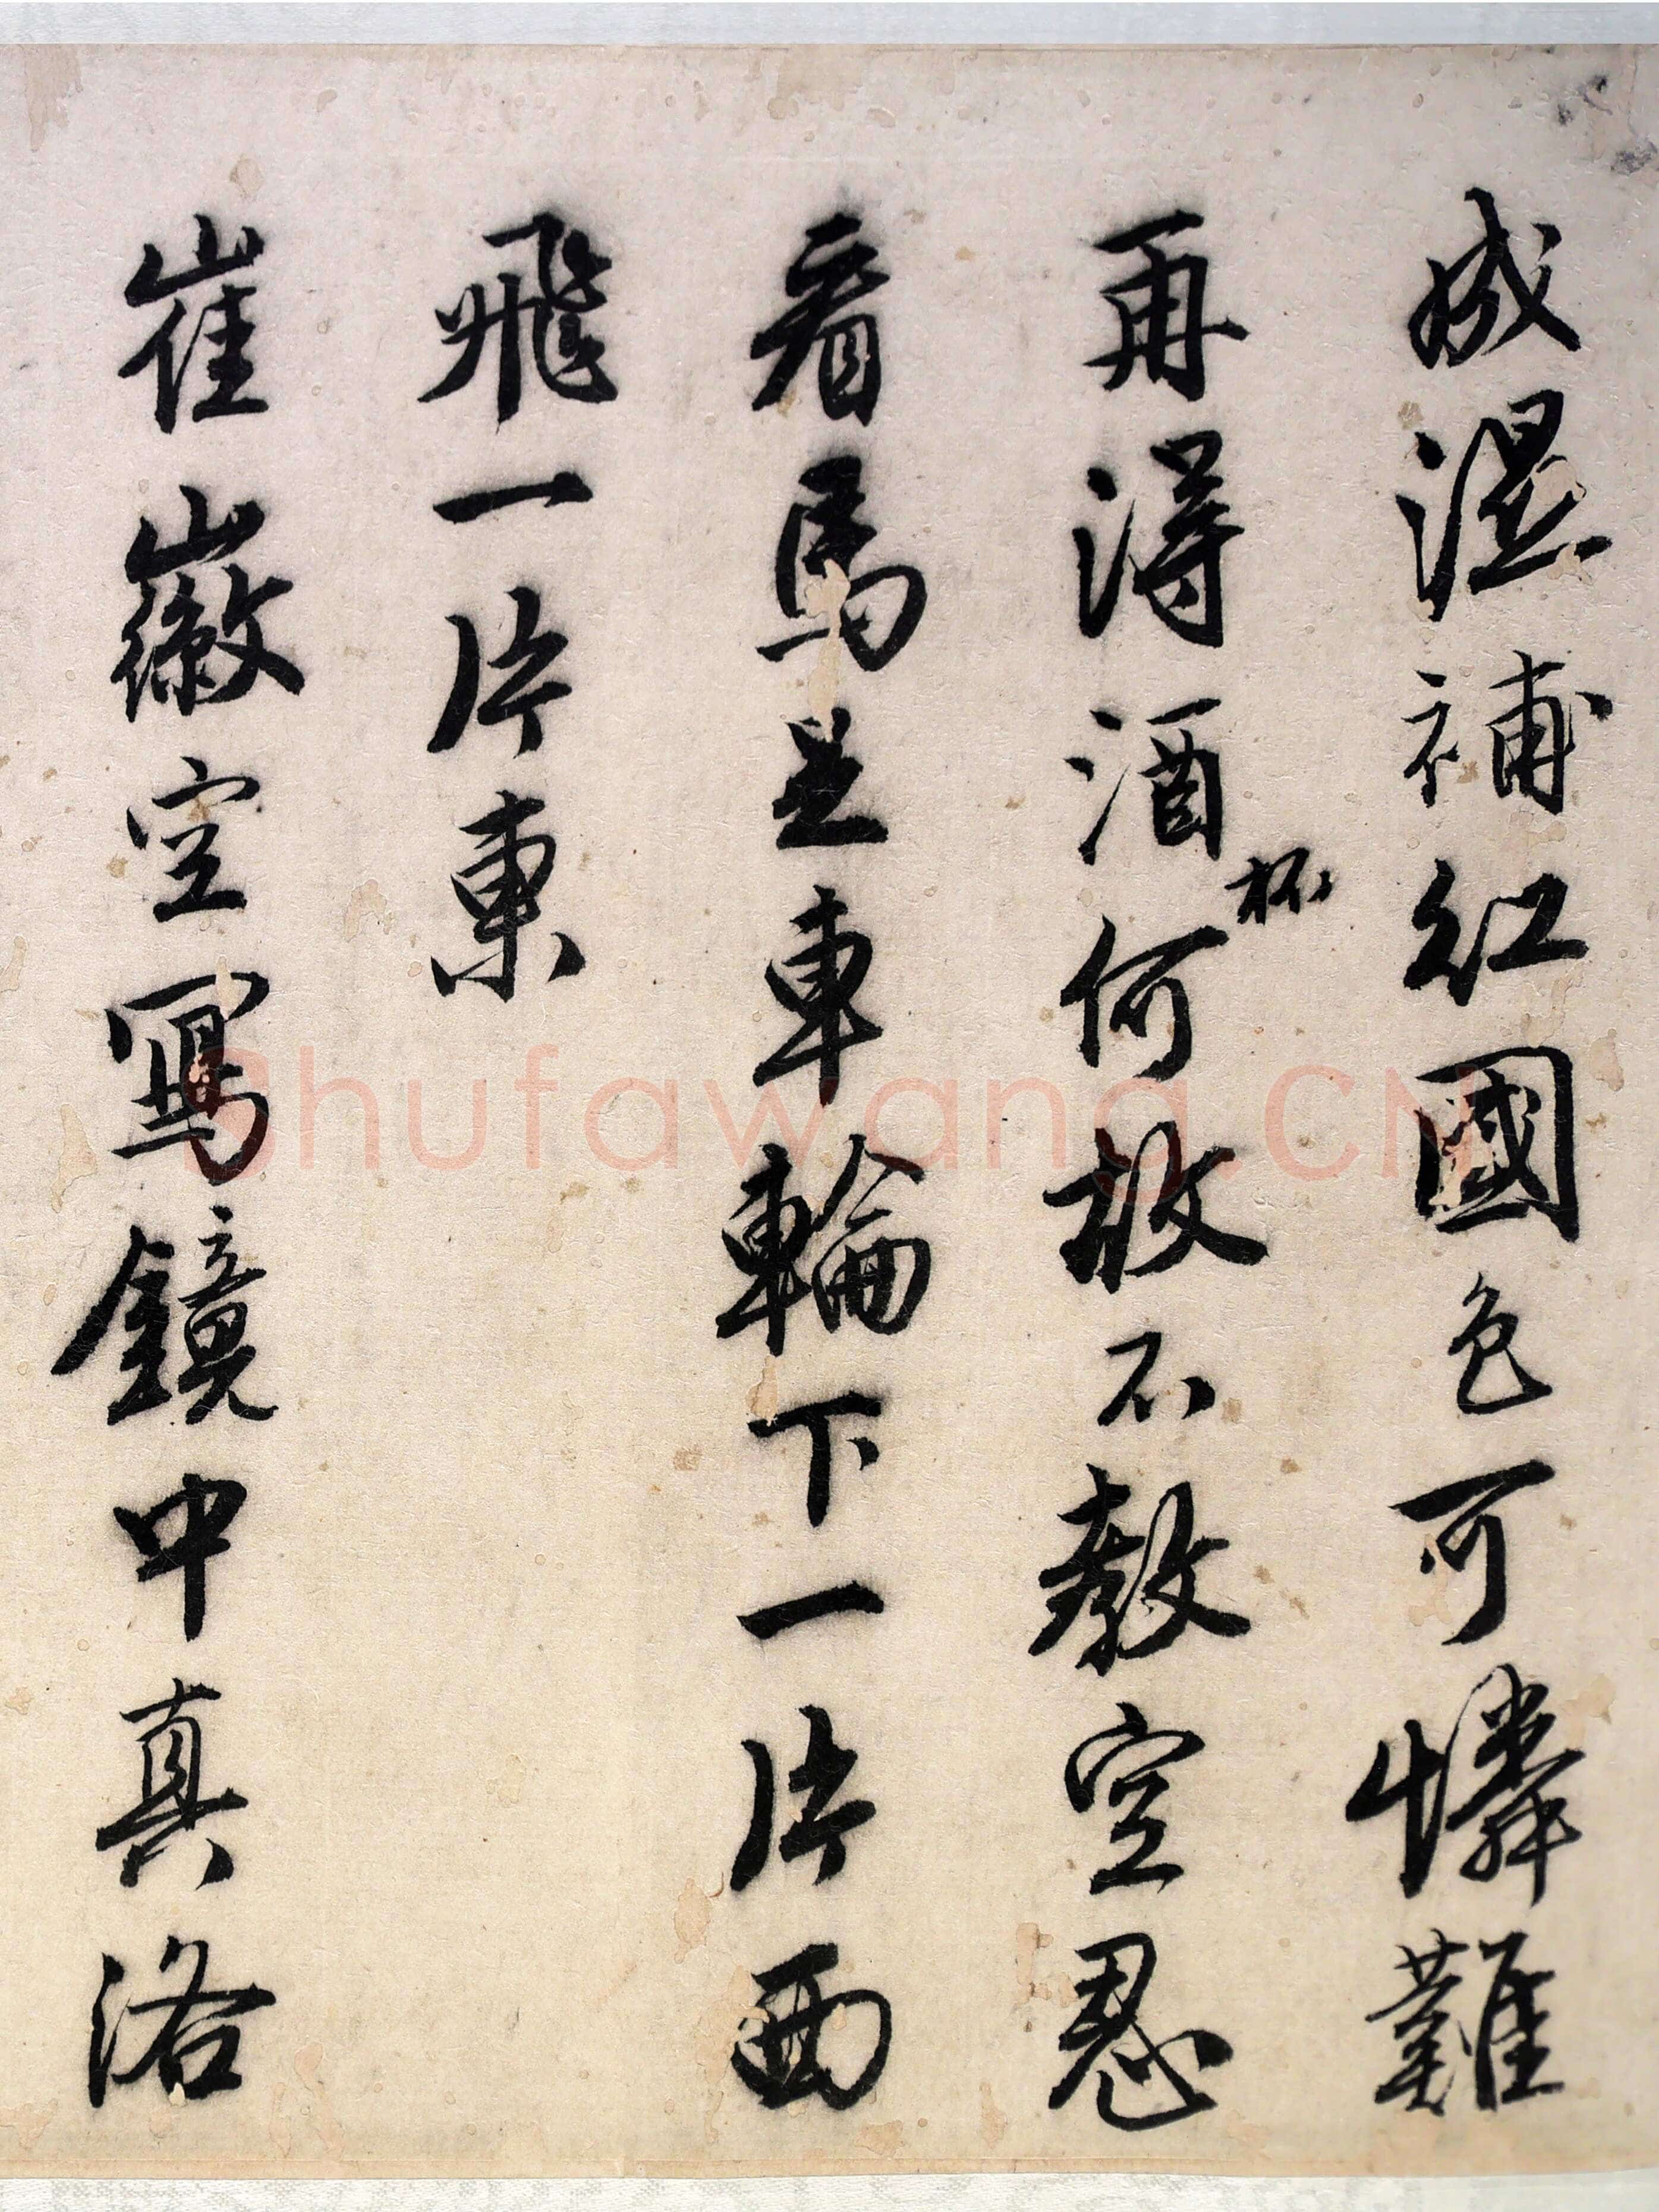 成湿補紅國色可憐難
再得酒杯何故不教空忍
看馬足車輪下一片西
飛一片東
崔徽空寫鏡中真洛
Shufawang.CN